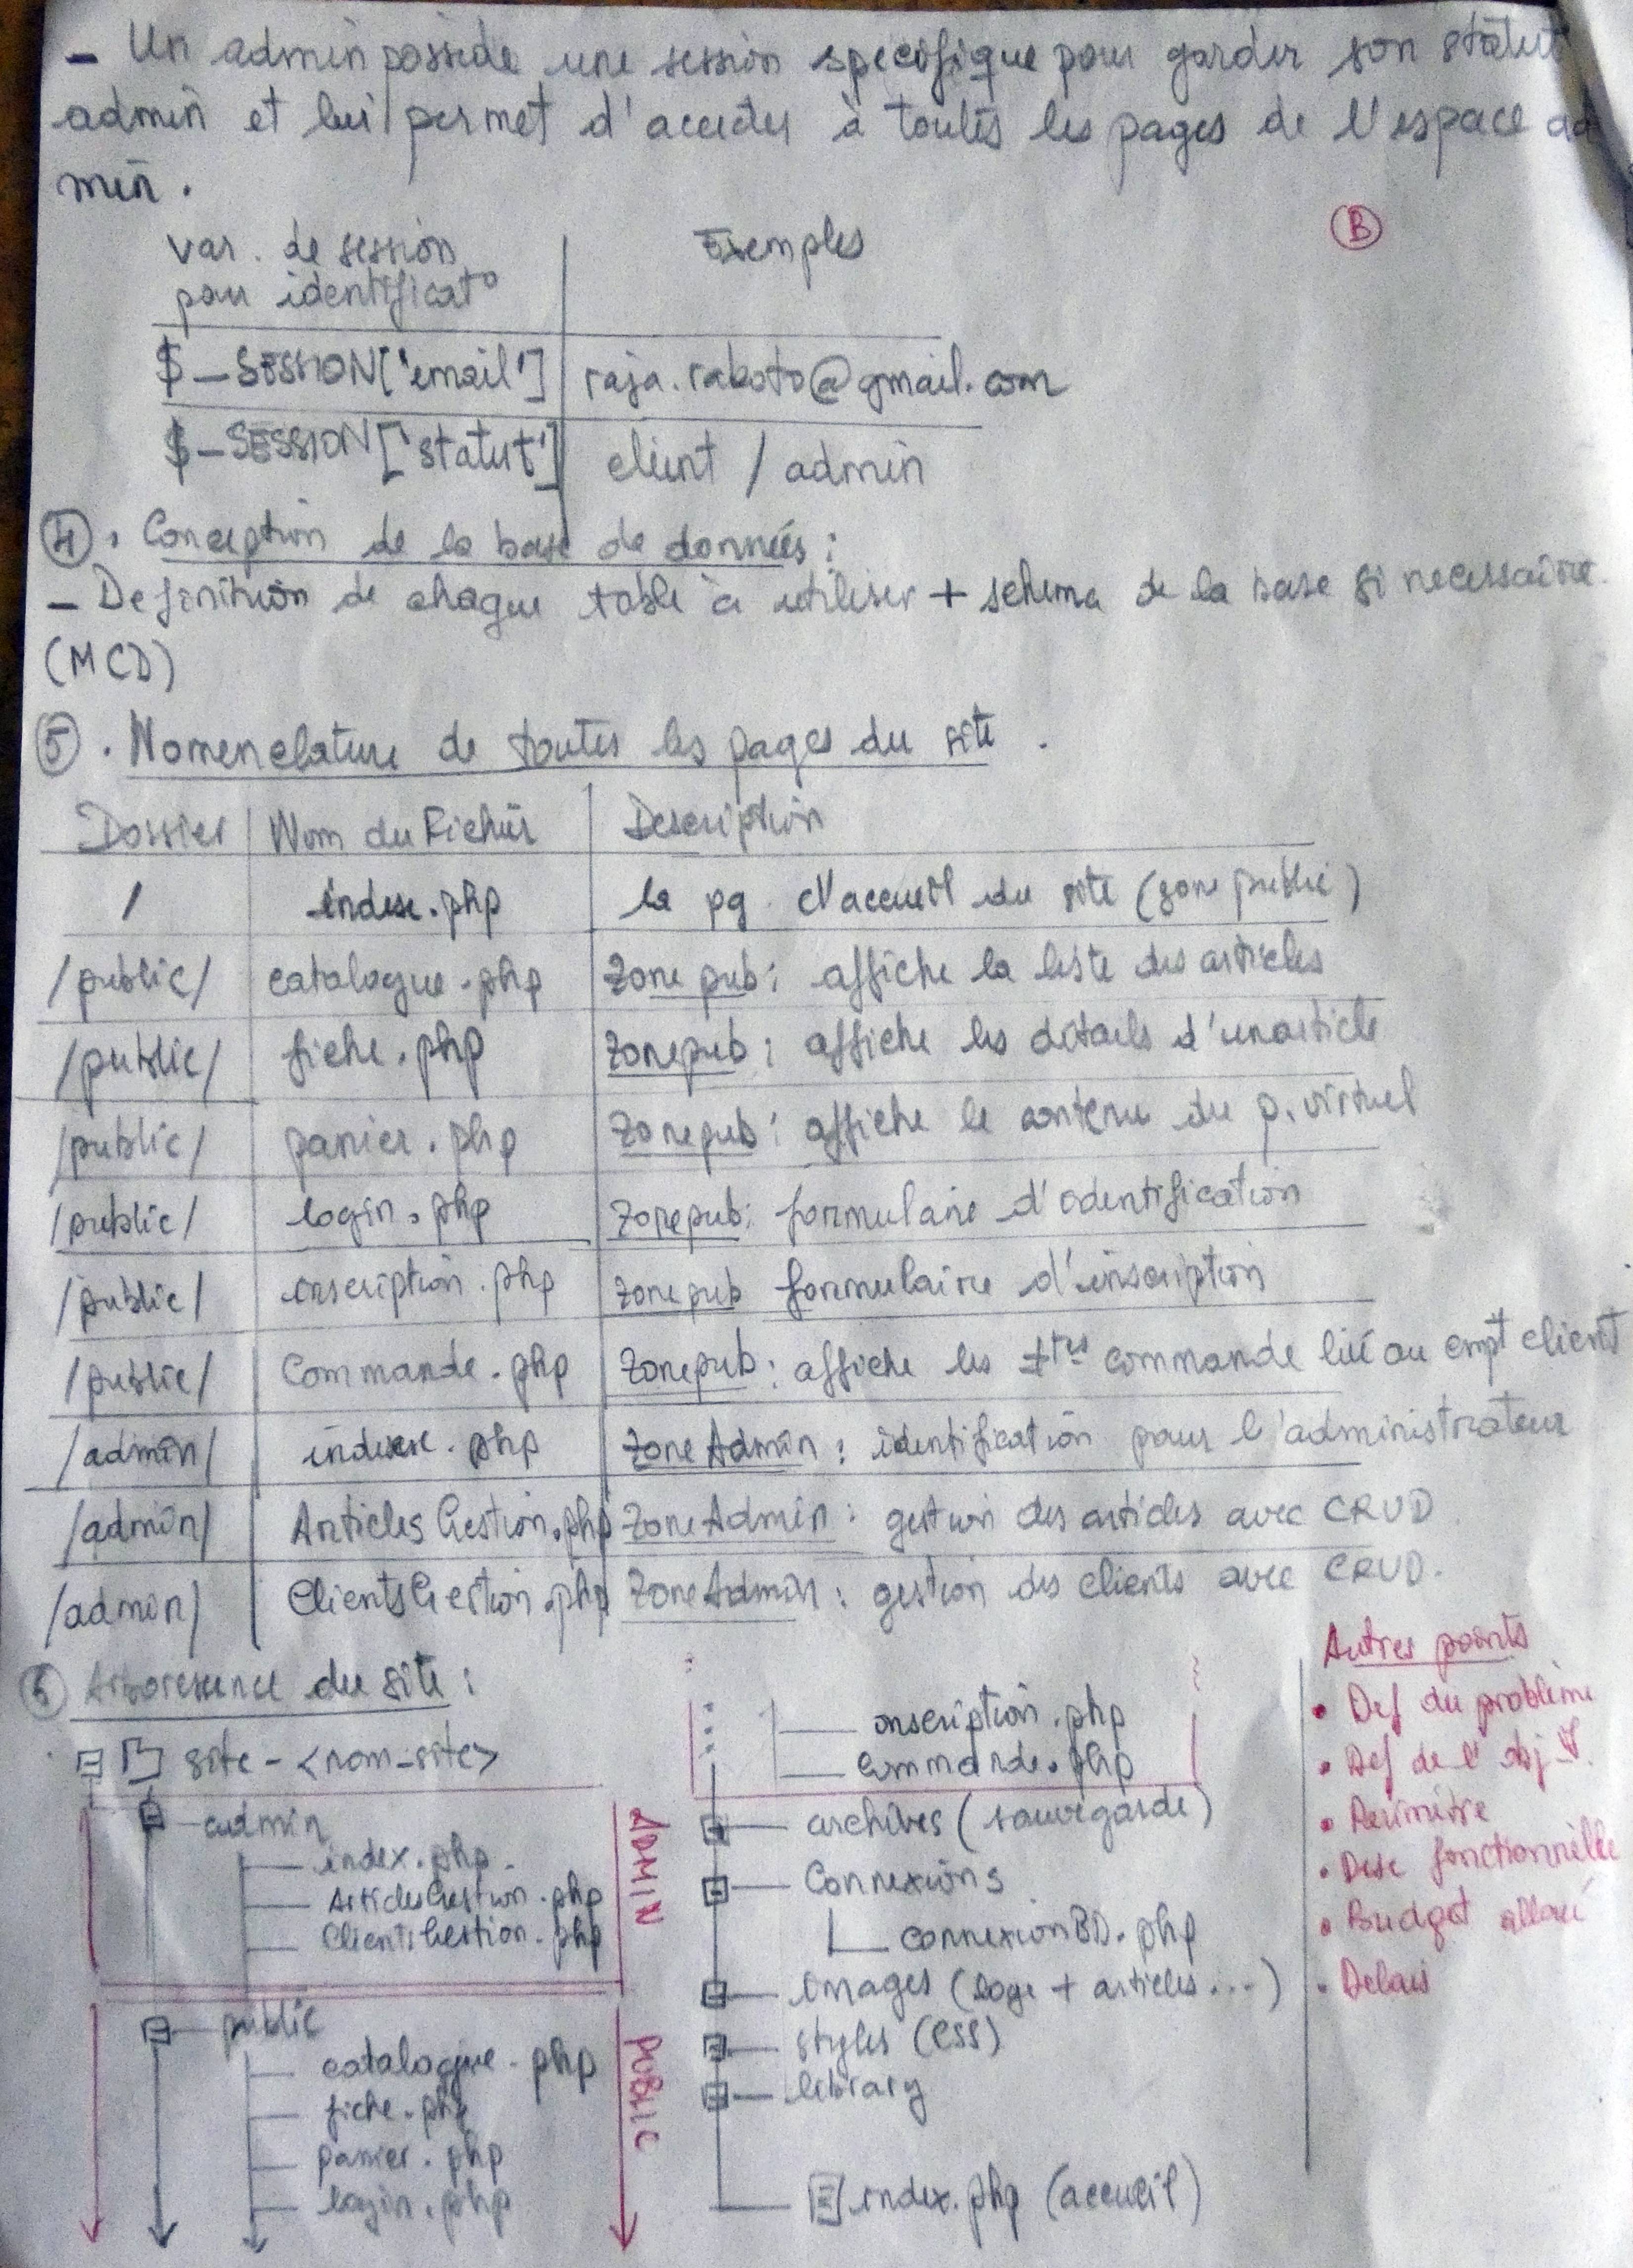 - Un admin possede une session specifique pour garder son statut
admin et lui permet d'acceder à toutes les pages de l'espace ad
min.
B
var. de session
pour identificat°
Exemples
$_SESSION['email'] raja.rakoto@gmail.com
$_SESSION['statut'] client / admin
4. Conception de la base de données :
- Definition de chaque table à utiliser + schema de la base si necessaire.
(MCD)
5. Nomenclature de toutes les pages du site.
Dossier Nom du Fichier Description
/ index.php la pg. d'accueil du site (zone public)
/public/ catalogue.php Zone pub : affiche la liste des articles
/public/ fiche.php Zone pub : affiche les détails d'un article
/public/ panier.php Zone pub : affiche le contenu du p. virtuel
/public/ login.php Zone pub : formulaire d'identification
/public/ inscription.php zone pub formulaire d'inscription
/public/ Commande.php Zone pub : affiche les ttes commande lié au cmpt client
/admin/ index.php Zone Admin : identification pour l'administrateur
/admin/ ArticlesGestion.php Zone Admin : gestion des articles avec CRUD.
/admin/ ClientsGestion.php Zone Admin : gestion des clients avec CRUD.
6 Arborescence du site :
site-<nom_site>
admin
index.php
ArticlesGestion.php
ClientsGestion.php
ADMIN
public
catalogue.php
fiche.php
panier.php
login.php
PUBLIC
inscription.php
commande.php
archives (sauvegarde)
Connexions
connexionBD.php
images (logo + articles...)
styles (CSS)
library
index.php (accueil)
Autres points
• Def du problème
• Def de l'obj
• Perimètre
• Desc fonctionnelle
• Budget alloué
• Delais